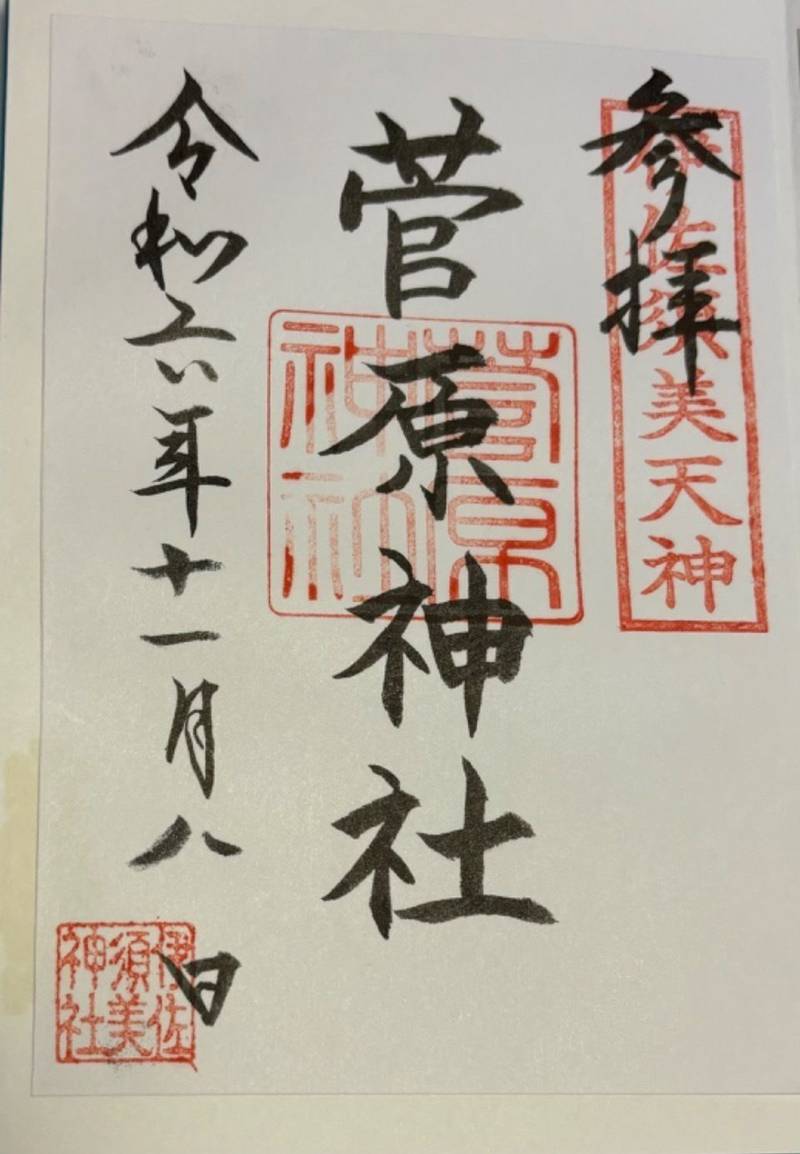 参拝
伊佐須美天神
菅原神社
菅原神社
令和六年十一月八日
伊佐須美神社